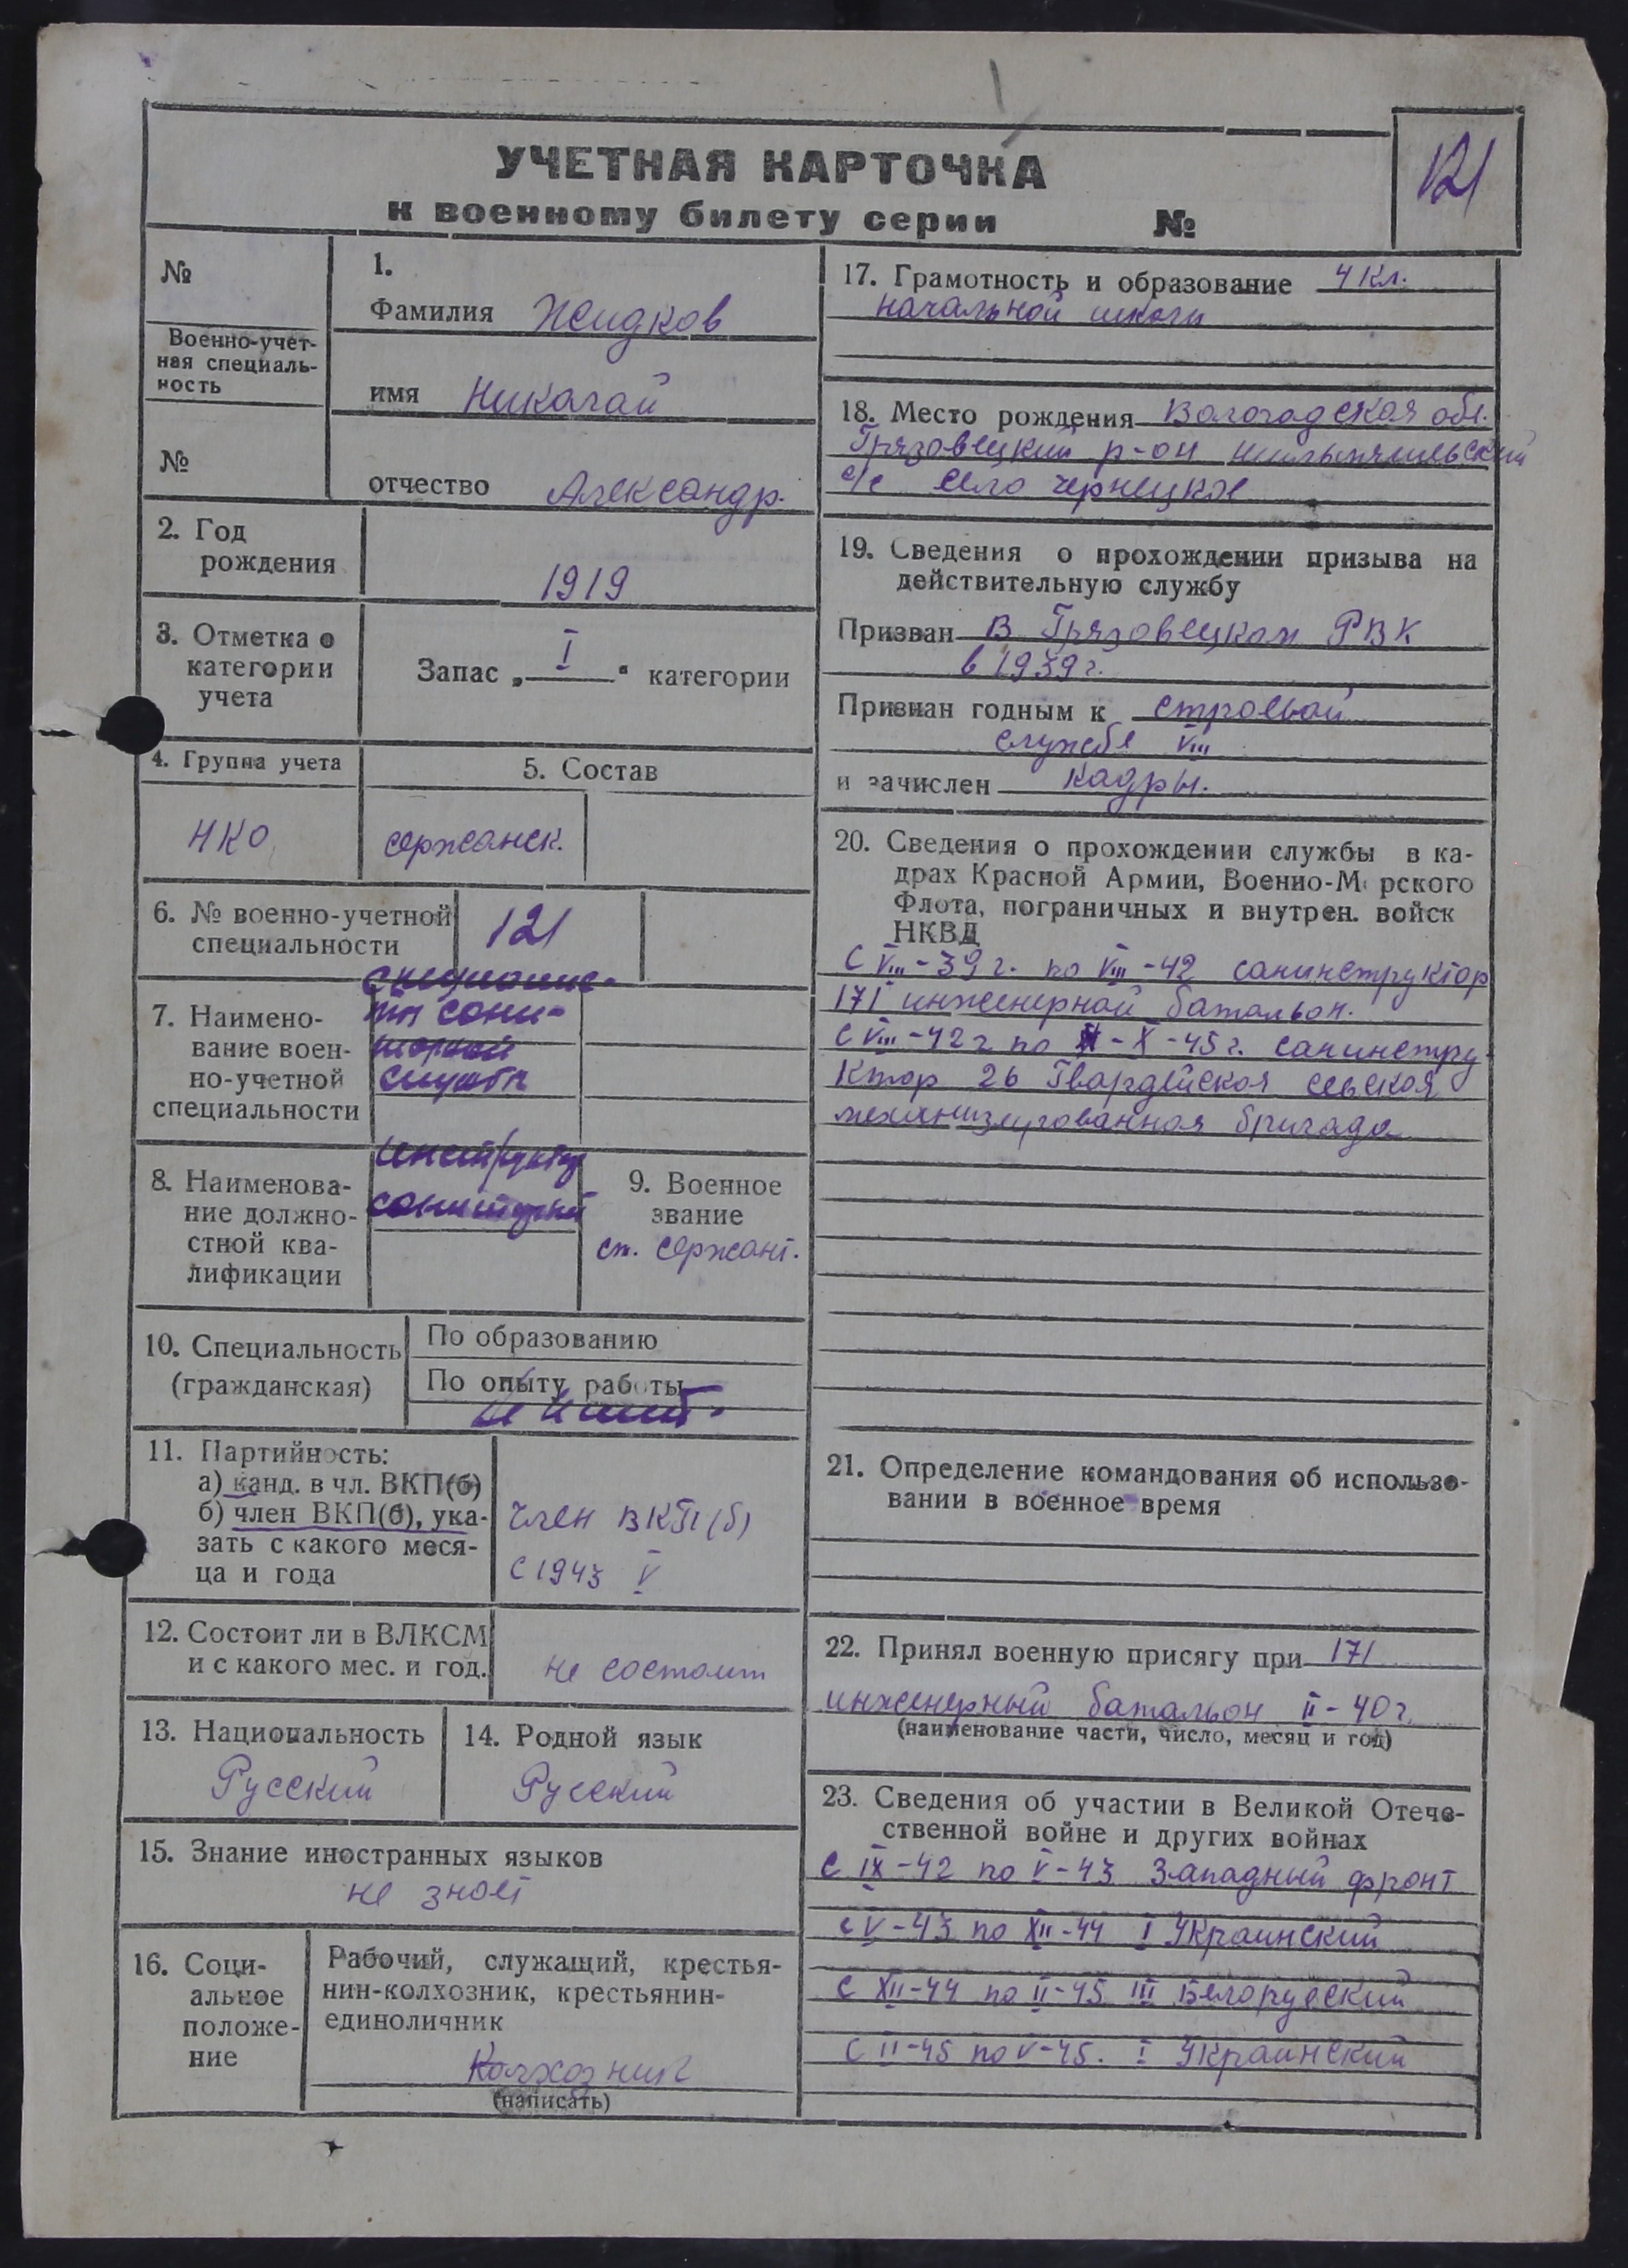 УЧЕТНАЯ КАРТОЧКА
к военному билету серии №
121
№
Военно-учет-
ная специаль-
ность
№
1.
Фамилия Жидков
имя Николай
отчество Александр.
2. Год
рождения
1919
3. Отметка о
категории
учета
Запас „ I “ категории
4. Группа учета
НКО
5. Состав
сержанск.
6. № военно-учетной
специальности
121
7. Наимено-
вание воен-
но-учетной
специальности
сани-
тарной
службы
8. Наименова-
ние должно-
стной ква-
лификации
инструктор
санитарный
9. Военное
звание
ст. сержант.
10. Специальность
(гражданская)
По образованию
По опыту работы
не имеет.
11. Партийность:
а) канд. в чл. ВКП(б)
б) член ВКП(б), ука-
зать с какого меся-
ца и года
член ВКП(б)
с 1943 V
12. Состоит ли в ВЛКСМ
и с какого мес. и год.
не состоит
13. Национальность
Русский
14. Родной язык
Русский
15. Знание иностранных языков
не знает
16. Соци-
альное
положе-
ние
Рабочий, служащий, крестья-
нин-колхозник, крестьянин-
единоличник
Колхозник
(написать)
17. Грамотность и образование 4 кл.
начальной школы
18. Место рождения Вологодская обл.
Грязовецкий р-он
с/с село Чернецкое
19. Сведения о прохождении призыва на
действительную службу
Призван В Грязовецком РВК
в 1939 г.
Признан годным к строевой
службе VIII
и зачислен кадры.
20. Сведения о прохождении службы в ка-
драх Красной Армии, Военно-М рского
Флота, пограничных и внутрен. войск
НКВД
С VIII-39 г. по VIII-42 санинструктор
171 инженерной батальон.
С VIII-42 г по X-45 г. санинстру
ктор 26 Гвардейская
механизированная бригада
21. Определение командования об использо-
вании в военное время
22. Принял военную присягу при 171
инженерный батальон II-40 г.
(наименование части, число, месяц и год)
23. Сведения об участии в Великой Отече-
ственной войне и других войнах
С IX-42 по V-43 Западный фронт
с V-43 по XII-44 I Украинский
С XII-44 по II-45 III Белорусский
С II-45 по V-45. I Украинский